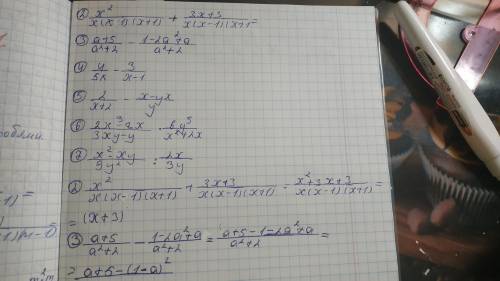 ② x²/(x(x-1)(x+1)) + (3x+3)/(x(x-1)(x+1)) =
③ (a+5)/(a²+2) - (1-2a²+a)/(a²+2)
④ y/5x - 3/(x-1)
⑤ 2/(x+2) - (x-yx)/y
⑥ (2x³-2x)/(3xy-y) · 6y⁵/(x²+2x)
⑦ (x²-xy)/9y² : 2x/3y
② x²/(x(x-1)(x+1)) + (3x+3)/(x(x-1)(x+1)) = (x²+3x+3)/(x(x-1)(x+1)) =
= (x+3)
③ (a+5)/(a²+2) - (1-2a²+a)/(a²+2) = (a+5-1-2a²+a)/(a²+2) =
= a+5-(1-a)²